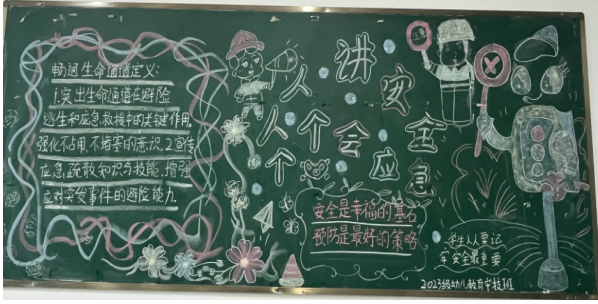 畅通生命通道定义:
1.突出生命通道在避险
逃生和应急救援中的关键作用
强化不占用,不堵塞的意识.2.宣传
应急,疏散知识与技能,增强
应对突发事件的避险能力.
人人讲安全
个个会应急
安全是幸福的基石
预防是最好的策略
学生人人要记
牢安全最重要
2023级幼儿教育中技班